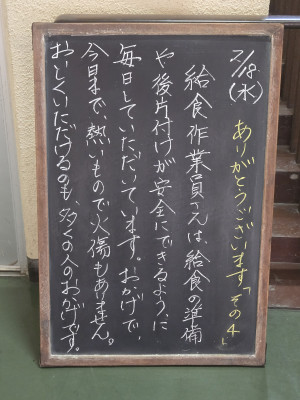 2/18(水)
ありがとうございます「その4」
給食作業員さんは、給食の準備
や後片付けが安全にできるように
毎日していただいています。おかげで、
今日まで、熱いもので火傷もありません。
おいしくいただけるのも、多くの人のおかげです。